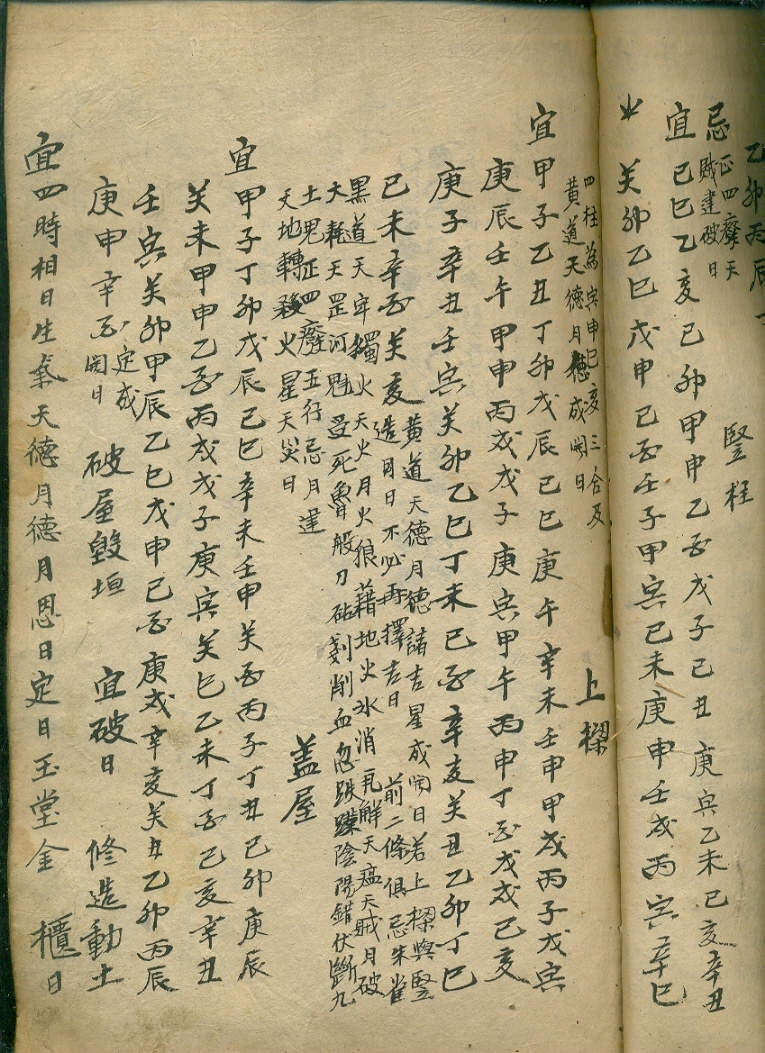 乙卯丙辰
忌正四廢天
賊建破日
豎柱
宜己巳乙亥己卯甲申乙酉戊子己丑庚寅乙未己亥辛丑
癸卯乙巳戊申己酉壬子甲寅己未庚申壬戌丙寅辛巳
四柱為寅申巳亥三合及
黄道天德月德成開日
上樑
宜甲子乙丑丁卯戊辰己巳庚午辛未壬申甲戌丙子戊寅
庚辰壬午甲申丙戌戊子庚寅甲午丙申丁酉戊戌己亥
庚子辛丑壬寅癸卯乙巳丁未己酉辛亥癸丑乙卯丁巳
己未辛酉癸亥黄道天德月德諸吉星成開日若上樑與豎
造同日不必再擇吉日 前二條俱忌朱雀
黑道天牢獨火天火月火狼藉地火氷消瓦解天瘟天賊月破
大耗天罡河魁受死魯般刀砧剗削血忌跌蹼陰陽錯伏斷九
土鬼正四廢五行忌月建
天地轉殺火星天災日
蓋屋
宜甲子丁卯戊辰己巳辛未壬申癸酉丙子丁丑己卯庚辰
癸未甲申乙酉丙戌戊子庚寅癸巳乙未丁酉己亥辛丑
壬寅癸卯甲辰乙巳戊申己酉庚戌辛亥癸丑乙卯丙辰
庚申辛酉定成開日 破屋毀垣 宜破日 修造動土
宜四時相日生氣天德月德月恩日定日玉堂金櫃日